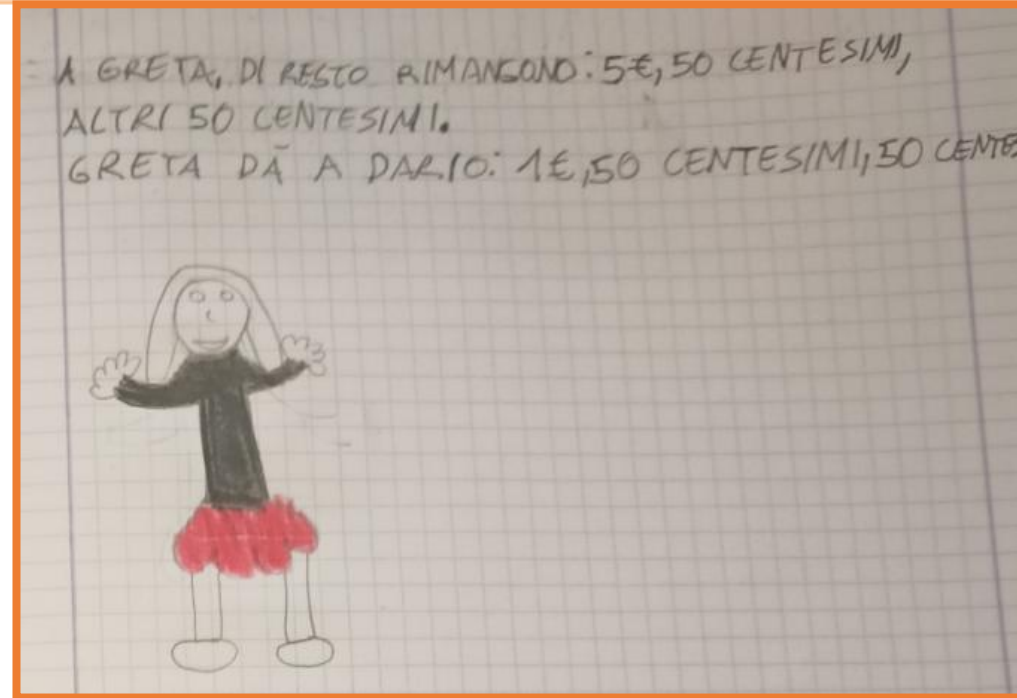 A GRETA, DI RESTO RIMANGONO: 5€, 50 CENTESIMI,
ALTRI 50 CENTESIMI.
GRETA DÀ A DARIO: 1€, 50 CENTESIMI, 50 CENTES